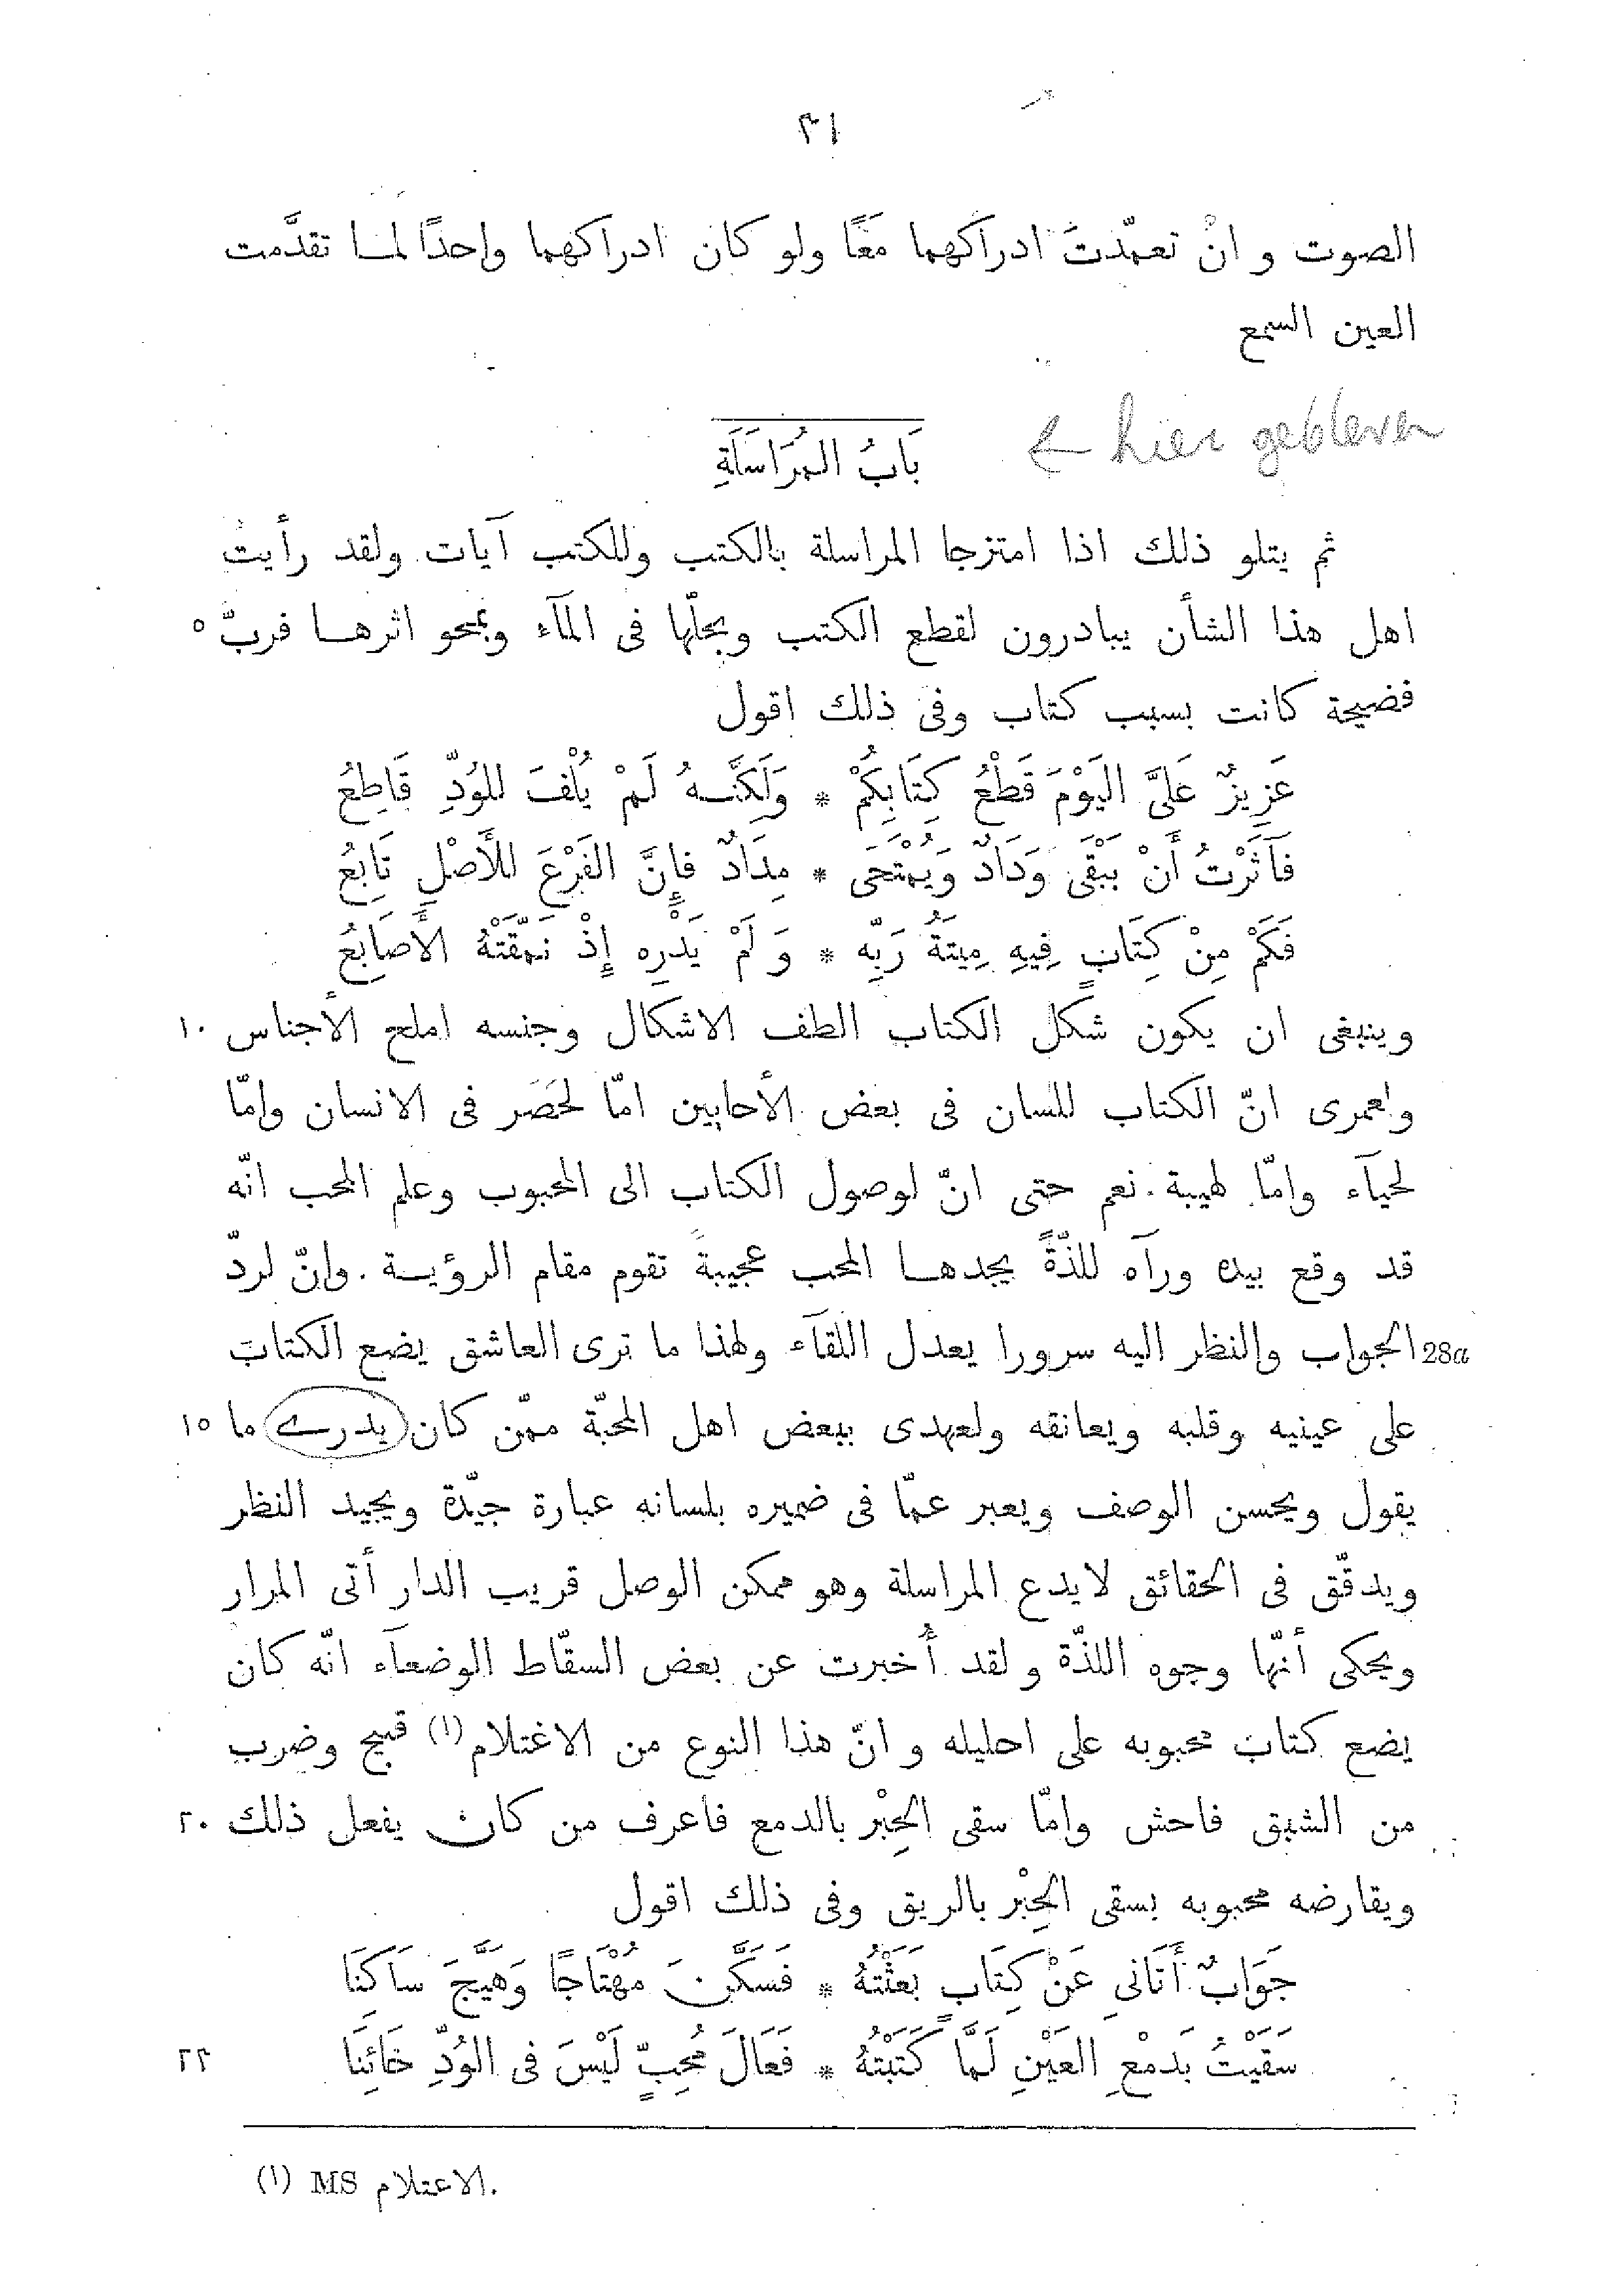 ٣١
الصوت و انْ تعمّدتَ ادراكهما مَعًا ولو كان ادراكهما واحدًا لمـا تقدَّمت
العين السمع
بَابُ المُرَاسَلَةِ
← hier gebleven
ثم يتلو ذلك اذا امتزجا المراسلة بالكتب وللكتب آيات ولقد رأيت
اهل هذا الشأن يبادرون لقطع الكتب وبحلّها فى المآء وبمحو اثرهـا فربّ ٥
فضيحة كانت بسبب كتاب وفى ذلك اقول
عَزِيزٌ عَلَىَّ اليَوْمَ قَطْعُ كِتَابِكُمْ * وَلَكِنَّـهُ لَمْ يُلْفَ للوُدِّ قَاطِعُ
فآثَرْتُ أَنْ يَبْقَى وَدَادٌ وَيُمْتَحَى * مِدَادٌ فإِنَّ الفَرْعَ للأَصْلِ تَابِعُ
فَكَمْ مِنْ كِتَابٍ فِيهِ مِيتَةُ رَبِّهِ * وَلَمْ يَدْرِهِ إِذْ نَمَّقَتْهُ الأَصَابِعُ
وينبغى ان يكون شكل الكتاب الطف الاشكال وجنسه املح الأجناس ١٠
ولعمرى انّ الكتاب للسان فى بعض الأحايين امّا لحَصَر فى الانسان وامّا
لحيآء وامّا لهيبة. نعم حتى انّ لوصول الكتاب الى المحبوب وعلم المحب انّه
قد وقع بيده ورآه للذّةً يجدهـا المحب عجيبةً تقوم مقام الرؤيـة. وانّ لردّ
28a الجواب والنظر اليه سرورا يعدل اللقآء ولهذا ما ترى العاشق يضع الكتاب
على عينيه وقلبه ويعانقه ولعهدى ببعض اهل المحبّة ممّن كان يدرى ما ١٥
يقول ويحسن الوصف ويعبر عمّا فى ضميره بلسانه عبارة جيّدة ويجيد النظر
ويدقّق فى الحقائق لا يدع المراسلة وهو ممكن الوصل قريب الدار أتى المزار
ويحكى أنّها وجوه اللذّة ولقد أُخبرت عن بعض السقّاط الوضعآء انّه كان
يضع كتاب محبوبه على احليله و انّ هذا النوع من الاغتلام (١) قبيح وضرب
من الشبق فاحش وامّا سقى الحِبْر بالدمع فاعرف من كان يفعل ذلك ٢٠
ويقارضه محبوبه بسقى الحِبْر بالريق وفى ذلك اقول
جَوَابٌ أَتَانِى عَنْ كِتَابٍ بَعَثْتُهُ * فَسَكَّنَ مُهْتَاجًا وَهَيَّجَ سَاكِنَا
سَقَيْتُ بَدمْعِ العَيْنِ لَمَّا كَتَبْتُهُ * فَعَالَ مُحِبٍّ لَيْسَ فى الوُدِّ خَائِنَا ٢٢
(١) MS الاعتلام.